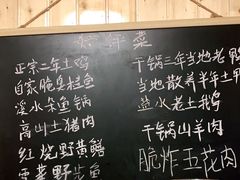 菜
正宗二年土鸡
自家腌臭桂鱼
溪水杂鱼锅
高山土猪肉
红烧野黄鳝
雪菜野鱼
干锅三年当地老
当地散养半年
盐水老土鹅
干锅山羊肉
脆炸五花肉